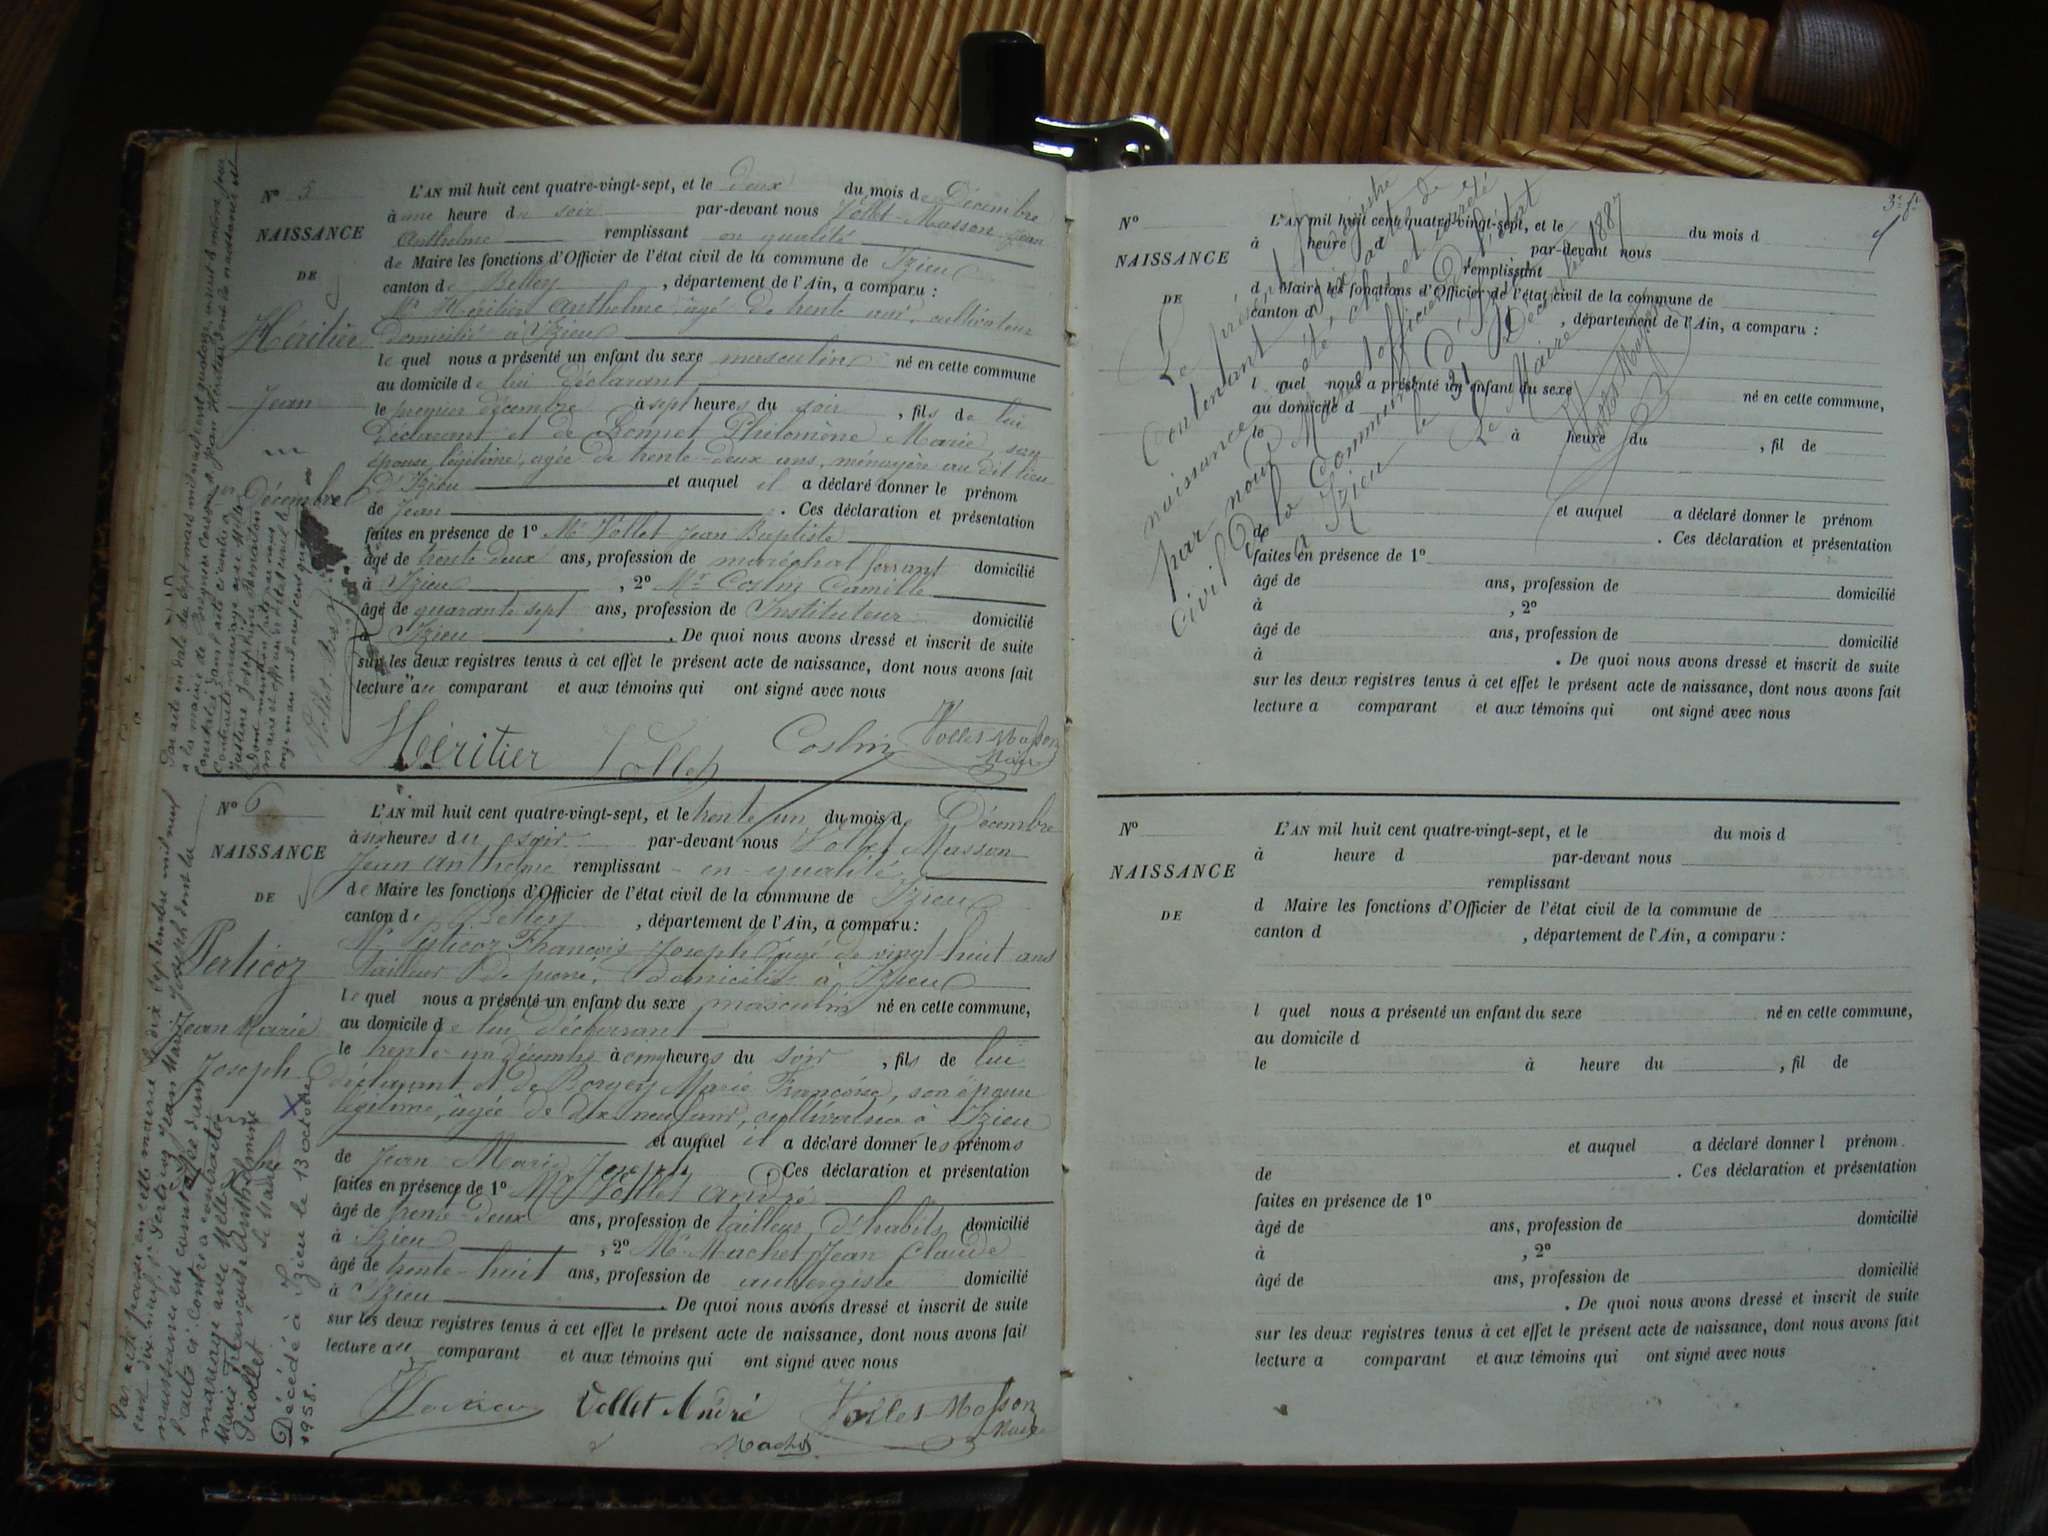 N° 5
NAISSANCE
DE
Héritier
Jean
Décembre
L'AN mil huit cent quatre-vingt-sept, et le deux du mois de Décembre
à une heure du soir par-devant nous Vollet-Masson Jean
Anthelme remplissant en qualité
de Maire les fonctions d'Officier de l'état civil de la commune de Izieu
canton de Belley, département de l'Ain, a comparu :
Mr Héritier Anthelme, âgé de trente ans, cultivateur
domicilié à Izieu
le quel nous a présenté un enfant du sexe masculin né en cette commune
au domicile de lui déclarant
le premier décembre à sept heures du soir, fils de lui
déclarant et de Philomène Marie, son
épouse légitime, âgée de trente-deux ans, ménagère au dit lieu
d'Izieu et auquel il a déclaré donner le prénom
de Jean. Ces déclaration et présentation
faites en présence de 1° Mr Vollet Jean Baptiste
âgé de trente-deux ans, profession de maréchal ferrant domicilié
à Izieu, 2° Mr Costin Camille
âgé de quarante sept ans, profession de Instituteur domicilié
à Izieu. De quoi nous avons dressé et inscrit de suite
sur les deux registres tenus à cet effet le présent acte de naissance, dont nous avons fait
lecture au comparant et aux témoins qui ont signé avec nous
Héritier Vollet Costin Vollet-Masson
Maire
N° 6
NAISSANCE
DE
Perticoz
Jean Marie
Joseph
L'AN mil huit cent quatre-vingt-sept, et le trente un du mois de Décembre
à six heures du soir par-devant nous Vollet Masson
Jean Anthelme remplissant en qualité
de Maire les fonctions d'Officier de l'état civil de la commune de Izieu
canton de Belley, département de l'Ain, a comparu :
Mr Perticoz François Joseph âgé de vingt-huit ans
tailleur de pierre, domicilié à Izieu
le quel nous a présenté un enfant du sexe masculin né en cette commune,
au domicile de lui déclarant
le trente-un décembre à cinq heures du soir, fils de lui
déclarant et de Borgey Marie Françoise, son épouse
légitime, âgée de dix neuf ans, cultivatrice à Izieu
et auquel il a déclaré donner les prénoms
de Jean Marie Joseph Ces déclaration et présentation
faites en présence de 1° Mr Vollet André
âgé de trente-deux ans, profession de tailleur d'habits domicilié
à Izieu, 2° Mr Machet Jean Claude
âgé de trente-huit ans, profession de aubergiste domicilié
à Izieu. De quoi nous avons dressé et inscrit de suite
sur les deux registres tenus à cet effet le présent acte de naissance, dont nous avons fait
lecture au comparant et aux témoins qui ont signé avec nous
Vollet André Vollet-Masson
Machet Maire
Par acte passé en cette mairie le dix septembre mil neuf
cent dix neuf, Mr Perticoz Jean Marie Joseph dont la
naissance est constatée dans
l'acte ci-contre a contracté
mariage avec Melle
Marie Françoise Anthelmine
Piollet
Le Maire
Décédé à Izieu le 13 octobre
1958.
Le présent registre
contenant six actes de
naissance a été clos et arrêté
par nous Maire officier de l'état
civil de la Commune d'Izieu
à Izieu le 31 Décembre 1887
Le Maire
Vollet Masson
N°
NAISSANCE
DE
L'AN mil huit cent quatre-vingt-sept, et le du mois d
à heure d par-devant nous
remplissant
d Maire les fonctions d'Officier de l'état civil de la commune de
canton d, département de l'Ain, a comparu :
l quel nous a présenté un enfant du sexe né en cette commune,
au domicile d
le à heure du, fil de
et auquel a déclaré donner le prénom
de. Ces déclaration et présentation
faites en présence de 1°
âgé de ans, profession de domicilié
à, 2°
âgé de ans, profession de domicilié
à. De quoi nous avons dressé et inscrit de suite
sur les deux registres tenus à cet effet le présent acte de naissance, dont nous avons fait
lecture a comparant et aux témoins qui ont signé avec nous
N°
NAISSANCE
DE
L'AN mil huit cent quatre-vingt-sept, et le du mois d
à heure d par-devant nous
remplissant
d Maire les fonctions d'Officier de l'état civil de la commune de
canton d, département de l'Ain, a comparu :
l quel nous a présenté un enfant du sexe né en cette commune,
au domicile d
le à heure du, fil de
et auquel a déclaré donner l prénom
de. Ces déclaration et présentation
faites en présence de 1°
âgé de ans, profession de domicilié
à, 2°
âgé de ans, profession de domicilié
. De quoi nous avons dressé et inscrit de suite
sur les deux registres tenus à cet effet le présent acte de naissance, dont nous avons fait
lecture a comparant et aux témoins qui ont signé avec nous